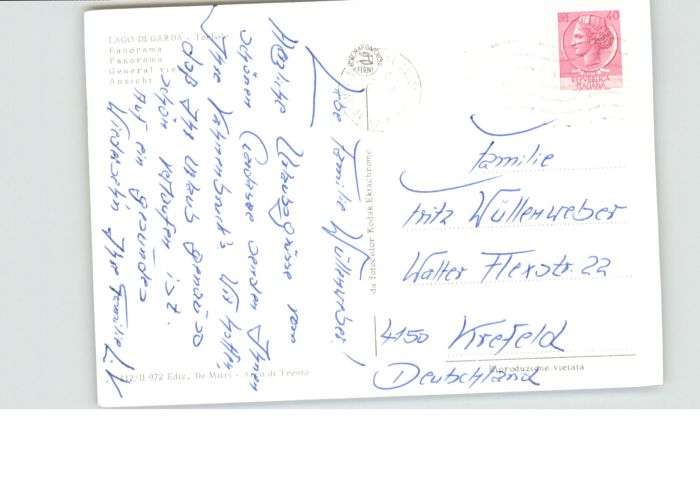 LAGO DI GARDA - Torbole
Panorama
Panorama
General view
Ansicht
Liebe Familie Wüllenweber!
Herzliche Urlaubsgrüsse vom
schönen Gardasee senden Ihnen
Ihre Wir hoffen,
daß Ihr Urlaub genauso
schön verlaufen ist.
Auf ein gesundes
Wiedersehn Ihre Familie
112/II 972 Ediz. De Mitri - Arco di Trento
da fotocolor Kodak Ektachrome
LIRE 40
REPUBBLICA
ITALIANA
Familie
Fritz Wüllenweber
Walter Flexstr. 22
4150 Krefeld
Deutschland
Riproduzione vietata